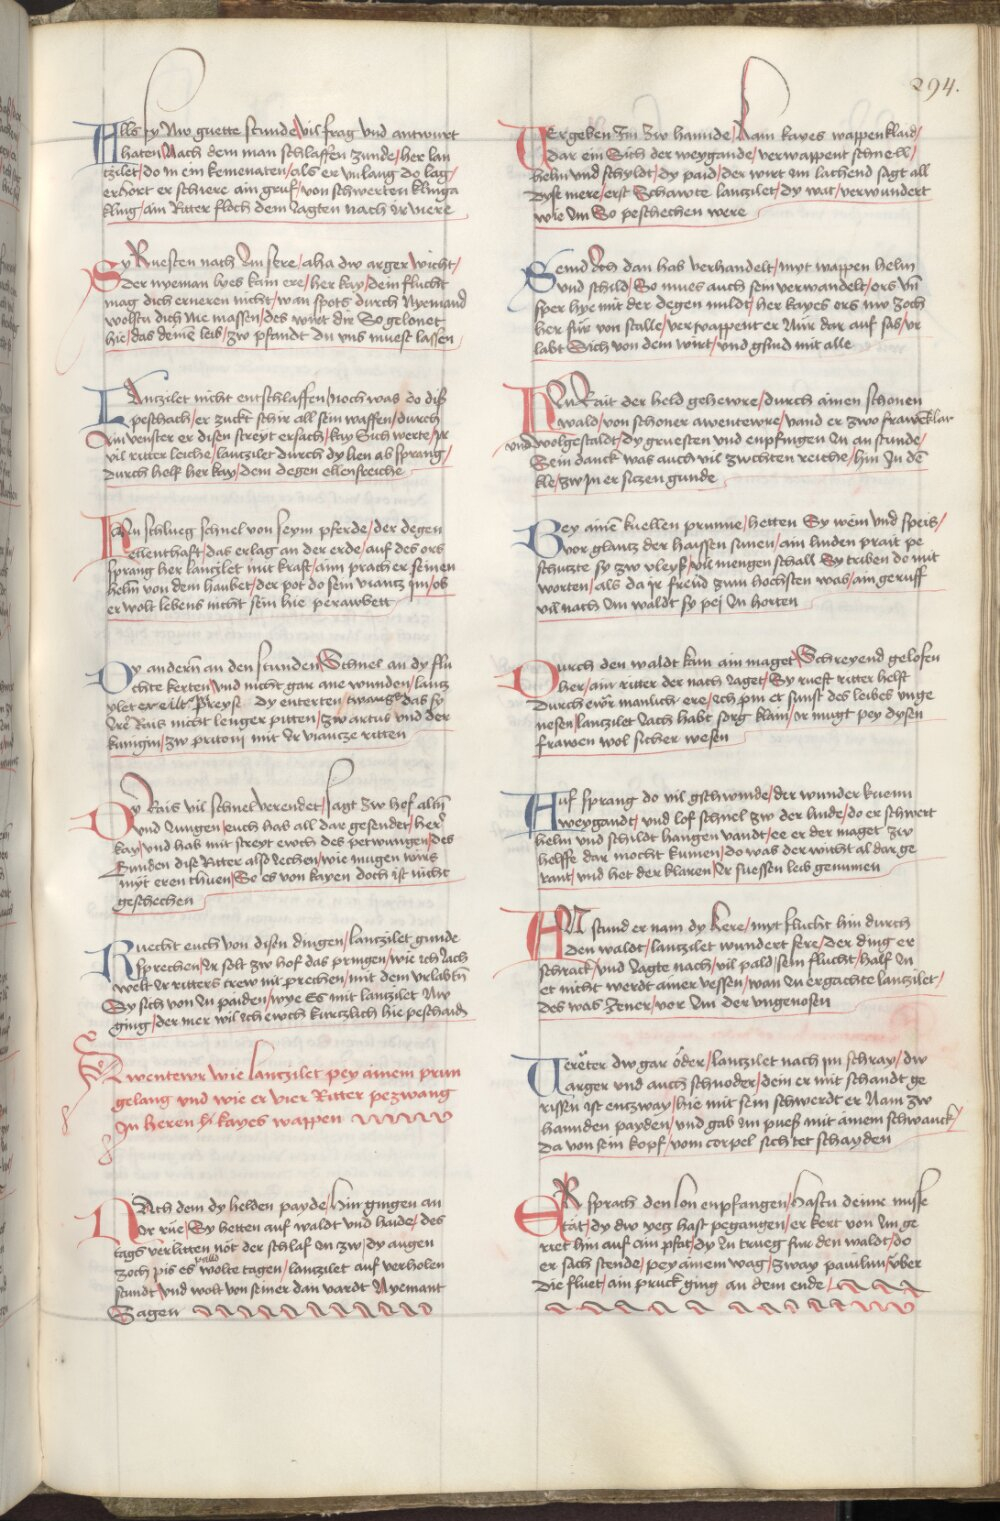 294.
Alls sy Nw guette stunde/vil frag vnd antwurt
haten/Nach dem man schlaffen zunde/her lan
tzilet/do in ein kemenaten/als er vnlang do lag/
erhort er schiere ain gruß/von schwerten klinga
kling/ain Ritter floch dem Iagten nach Ir viere
Sy Ruesten nach Im sere/aha dw arger wicht/
der nyeman lyes kain ere/her kay/dein flucht
mag dich erneren nicht/wan spots durch Nyemand
wolstu dich Nie massen/des wirt dir So gelonet
hie/das deinē leib/zw pfandt du vns muest lassen
LAnnzilet nicht entschlaffen/noch was do diß
peschach/er zuckt schir all sein waffen/durch
Ain venster er disen streyt ersach/kay Sich werte/Ir
vil ritter leiche/lanczilet durch dy lien ab sprang/
durch helf her kay/dem degen ellenstreiche
Ain schlueg schnel von seym pferde/der degen
ellenthaft/das erlag an der erde/auf des ors
sprang her lanczilet mit kraft/aim prach er seinen
helm von dem haubet/der pot do sein vianntz Im/ob
er wolt lebens nicht sein hie perawbett
Dy andern an den stunden/Schnel an dy flu
chte kerten/vnd nicht gar ane wunden/lantz
ylet er eilt Preyst dy enterten/twang das sy
Ire Rais nicht lenger pitten/zw artus vnd der
kunigin/zw pritoni mit Ir viancze ritten
Dy Rais vil schnel verendet/sagt zw hof altn
vnd Iungen/euch hab all dar gesendet/her
kay/vnd hab mit streyt ewch des petwungen/des
Bunden dise Ritter also Iechen/wie mugen wirs
myt eren thuen/So es von kayen doch ist nicht
geschechen
Ruecht euch von disen dingen/lanczilet gunde
sprechen/Ir solt zw hof das pringen/wie Ich Iach
welt Ir ritters trew nit prechen/mit dem vrlabtn
Sy sich von In paiden/wye Es mit lanzilet Nw
ging/der mer wil Ich ewch kurczlich hie peschaidn
Awentewr wie lanczilet pey ainem prun
gelang vnd wie er vier Ritter pezwang
In heren hr kayes wappen
NAch dem dy helden payde/hin gingen an
Ir rue/Sy hetten auf waldt vnd haide/des
tags verlitten not der schlaf In zw/dy augen
zoch pis es wolte tagen/lanczilet auf verholen
stundt/vnd wolt von seiner dan vardt Nyemant
Sagen
VErgeben Im zw hannde/kam kayes wappenklaid/
dar ein Sich der weygande/verwappent schnell/
helm vnd schyldt/dy paid/der wirt im lachend sagt all
dyse mere/erst Schawte lanczilet/dy wat/verwundert
wie Im So peschechen were
Seind Ich dan hab verhandelt/myt wappen helm
vnd schild/So mues auch sein verwandelt/ors vn̄
sper hye mit der degen mildt/her kayes ors nw zoch
her fur von stalle/verwappent er Nur dar auf sas/vr
labt Sich von dem wirt/vnd gsind mit alle
NU Rait der held gehewre/durch ainen schonen
wald/von schoner awentewre/vand er zwo frawen klar
vnd wolgestaldt/dy gruesten vnd enpfingen In an stunde/
Sein danck was auch vil zwchten reiche/hin In dē
kle/zw In er sitzen gunde
Bey ainē kuellen prunne/hetten Sy wein vnd speis/
vor glantz der haissen sunen/ain linden prait pe
schutzte sy zw vleyß/vil mengen schall Sy triben do mit
worten/als da Ir freud zum hochsten was/ain geruff
vil nach Im waldt sy pej In horten
Durch den waldt kan ain maget/Schreyend gelofen
her/ain ritter der nach Iaget/Sy rueft ritter helft
Durch ewr manlich ere/ich pin et sunst des leibes vnge
nesen/lanczilet Iach habt sorg klain/Ir mugt pey dysen
frawen wol sicher wesen
Auf sprang do vil gschwinde/der wunder kuenn
weygandt/vnd lof schnel zw der linde/do er schwert
helm vnd schildt hangen vandt/ee er der maget zw
helffe dar mocht kumen/do was der wicht al dar ge
rant/vnd het der klaren/Ir suessen leib genumen
An stund er nam dy kere/myt flucht hin durch
den waldt/lanczilet wundert sere/der ding er
schrack/vnd Iagte nach/vil pald/sein flucht/half In
et nicht werdt ainer vessen/wan In ergachte lanczilet/
des was Iener/vor Im der vngenosen
Verreter dw gar oder/lanczilet nach im schray/dw
arger vnd auch schnoder/dein er mit schandt ge
rissen ist entzway/hie mit sein schwerdt er Nam zw
hannden payden/vnd gab Im pueß mit ainem schwanck/
da von sein kopf/vom corpel sich tet schayden
ER sprach den lon enpfangen/hastu deiner misse
tat/dy dw yeg hast pegangen/er kert von Im ge
riet hin auf ain pfat/dy In trueg fur den waldt/do
er sach stende/pey ainem wag/zway pauilun/vber
Die fluet/ain pruck ging an dem ende